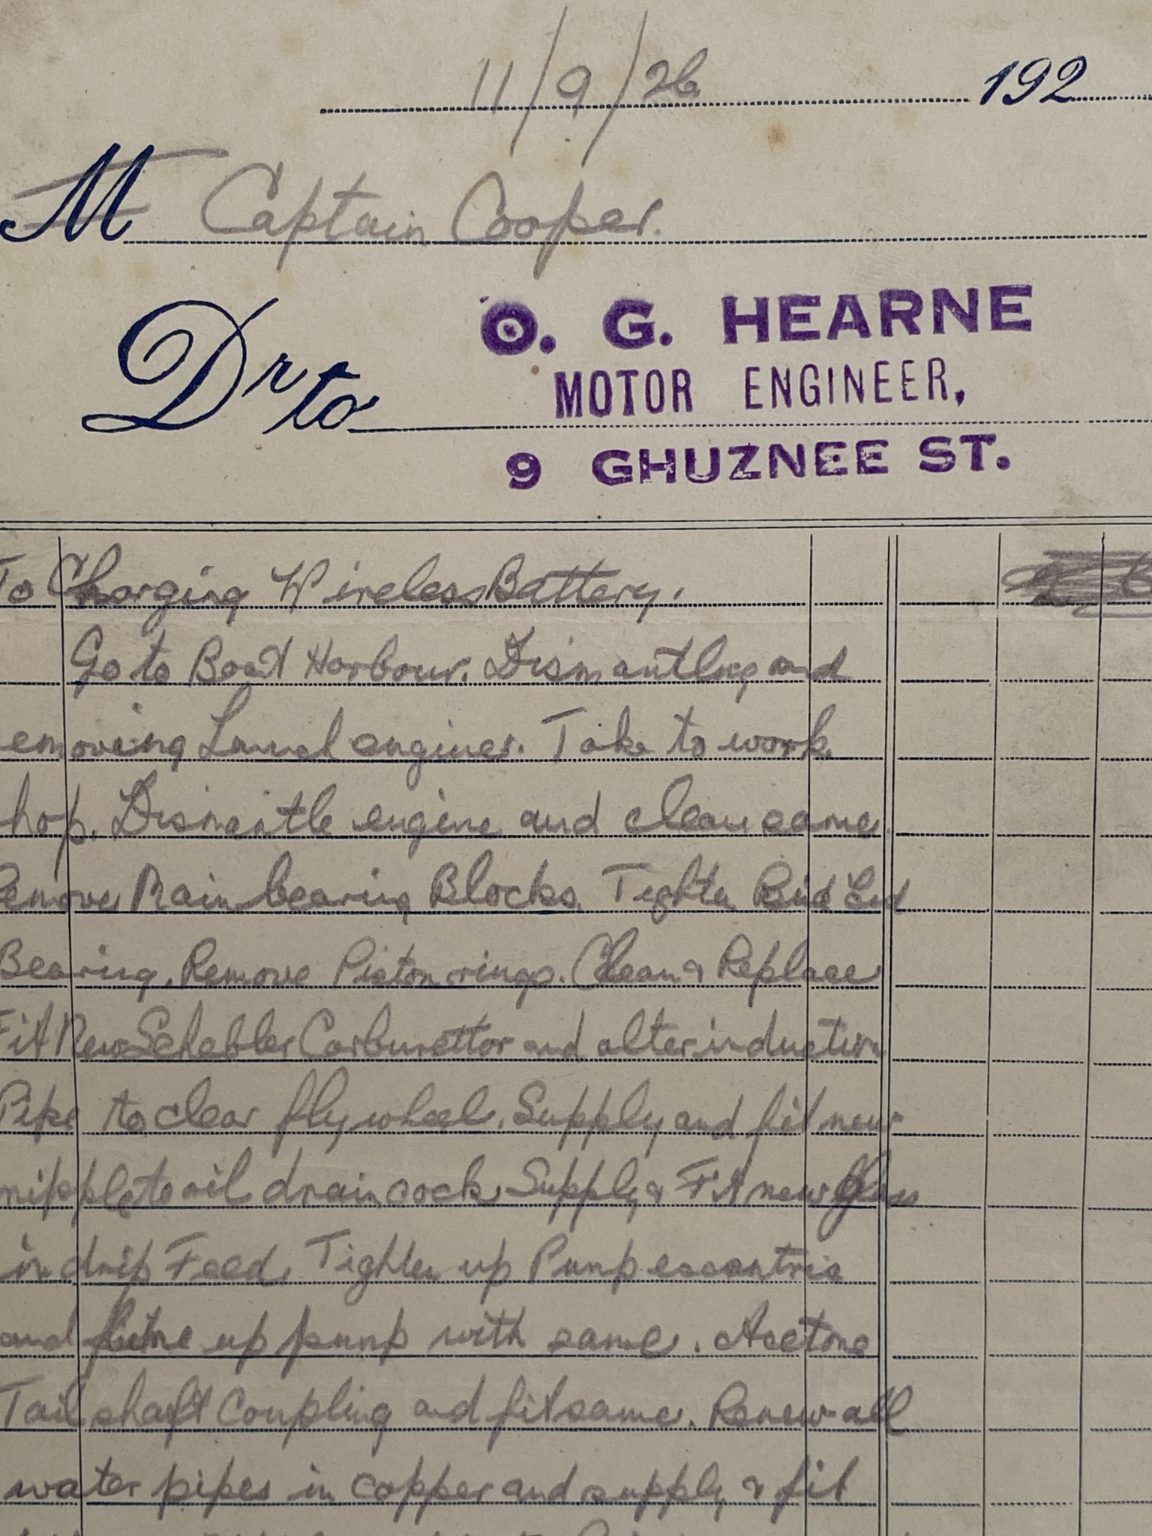 11/9/26 192
M Captain Cooper.
Dr to
O. G. HEARNE
MOTOR ENGINEER,
9 GHUZNEE ST.
To Charging Wireless Battery.
Go to Boat Harbour. Dismantling and
emoving engines. Take to work
hop. Dismantle engine and clean same
Remove Main bearing Blocks. Tighten End
Bearing. Remove Piston rings. Clean & Replace
Fit New Schebler Carburettor and alter induction
Pipe to clear fly wheel. Supply and fit new
nipple to oil drain cock. Supply & Fit new glass
in drip Feed. Tighten up Pump eccentric
and up pump with same. Acetone
Tail shaft Coupling and fit same. Renew all
water pipes in copper and supply & fit